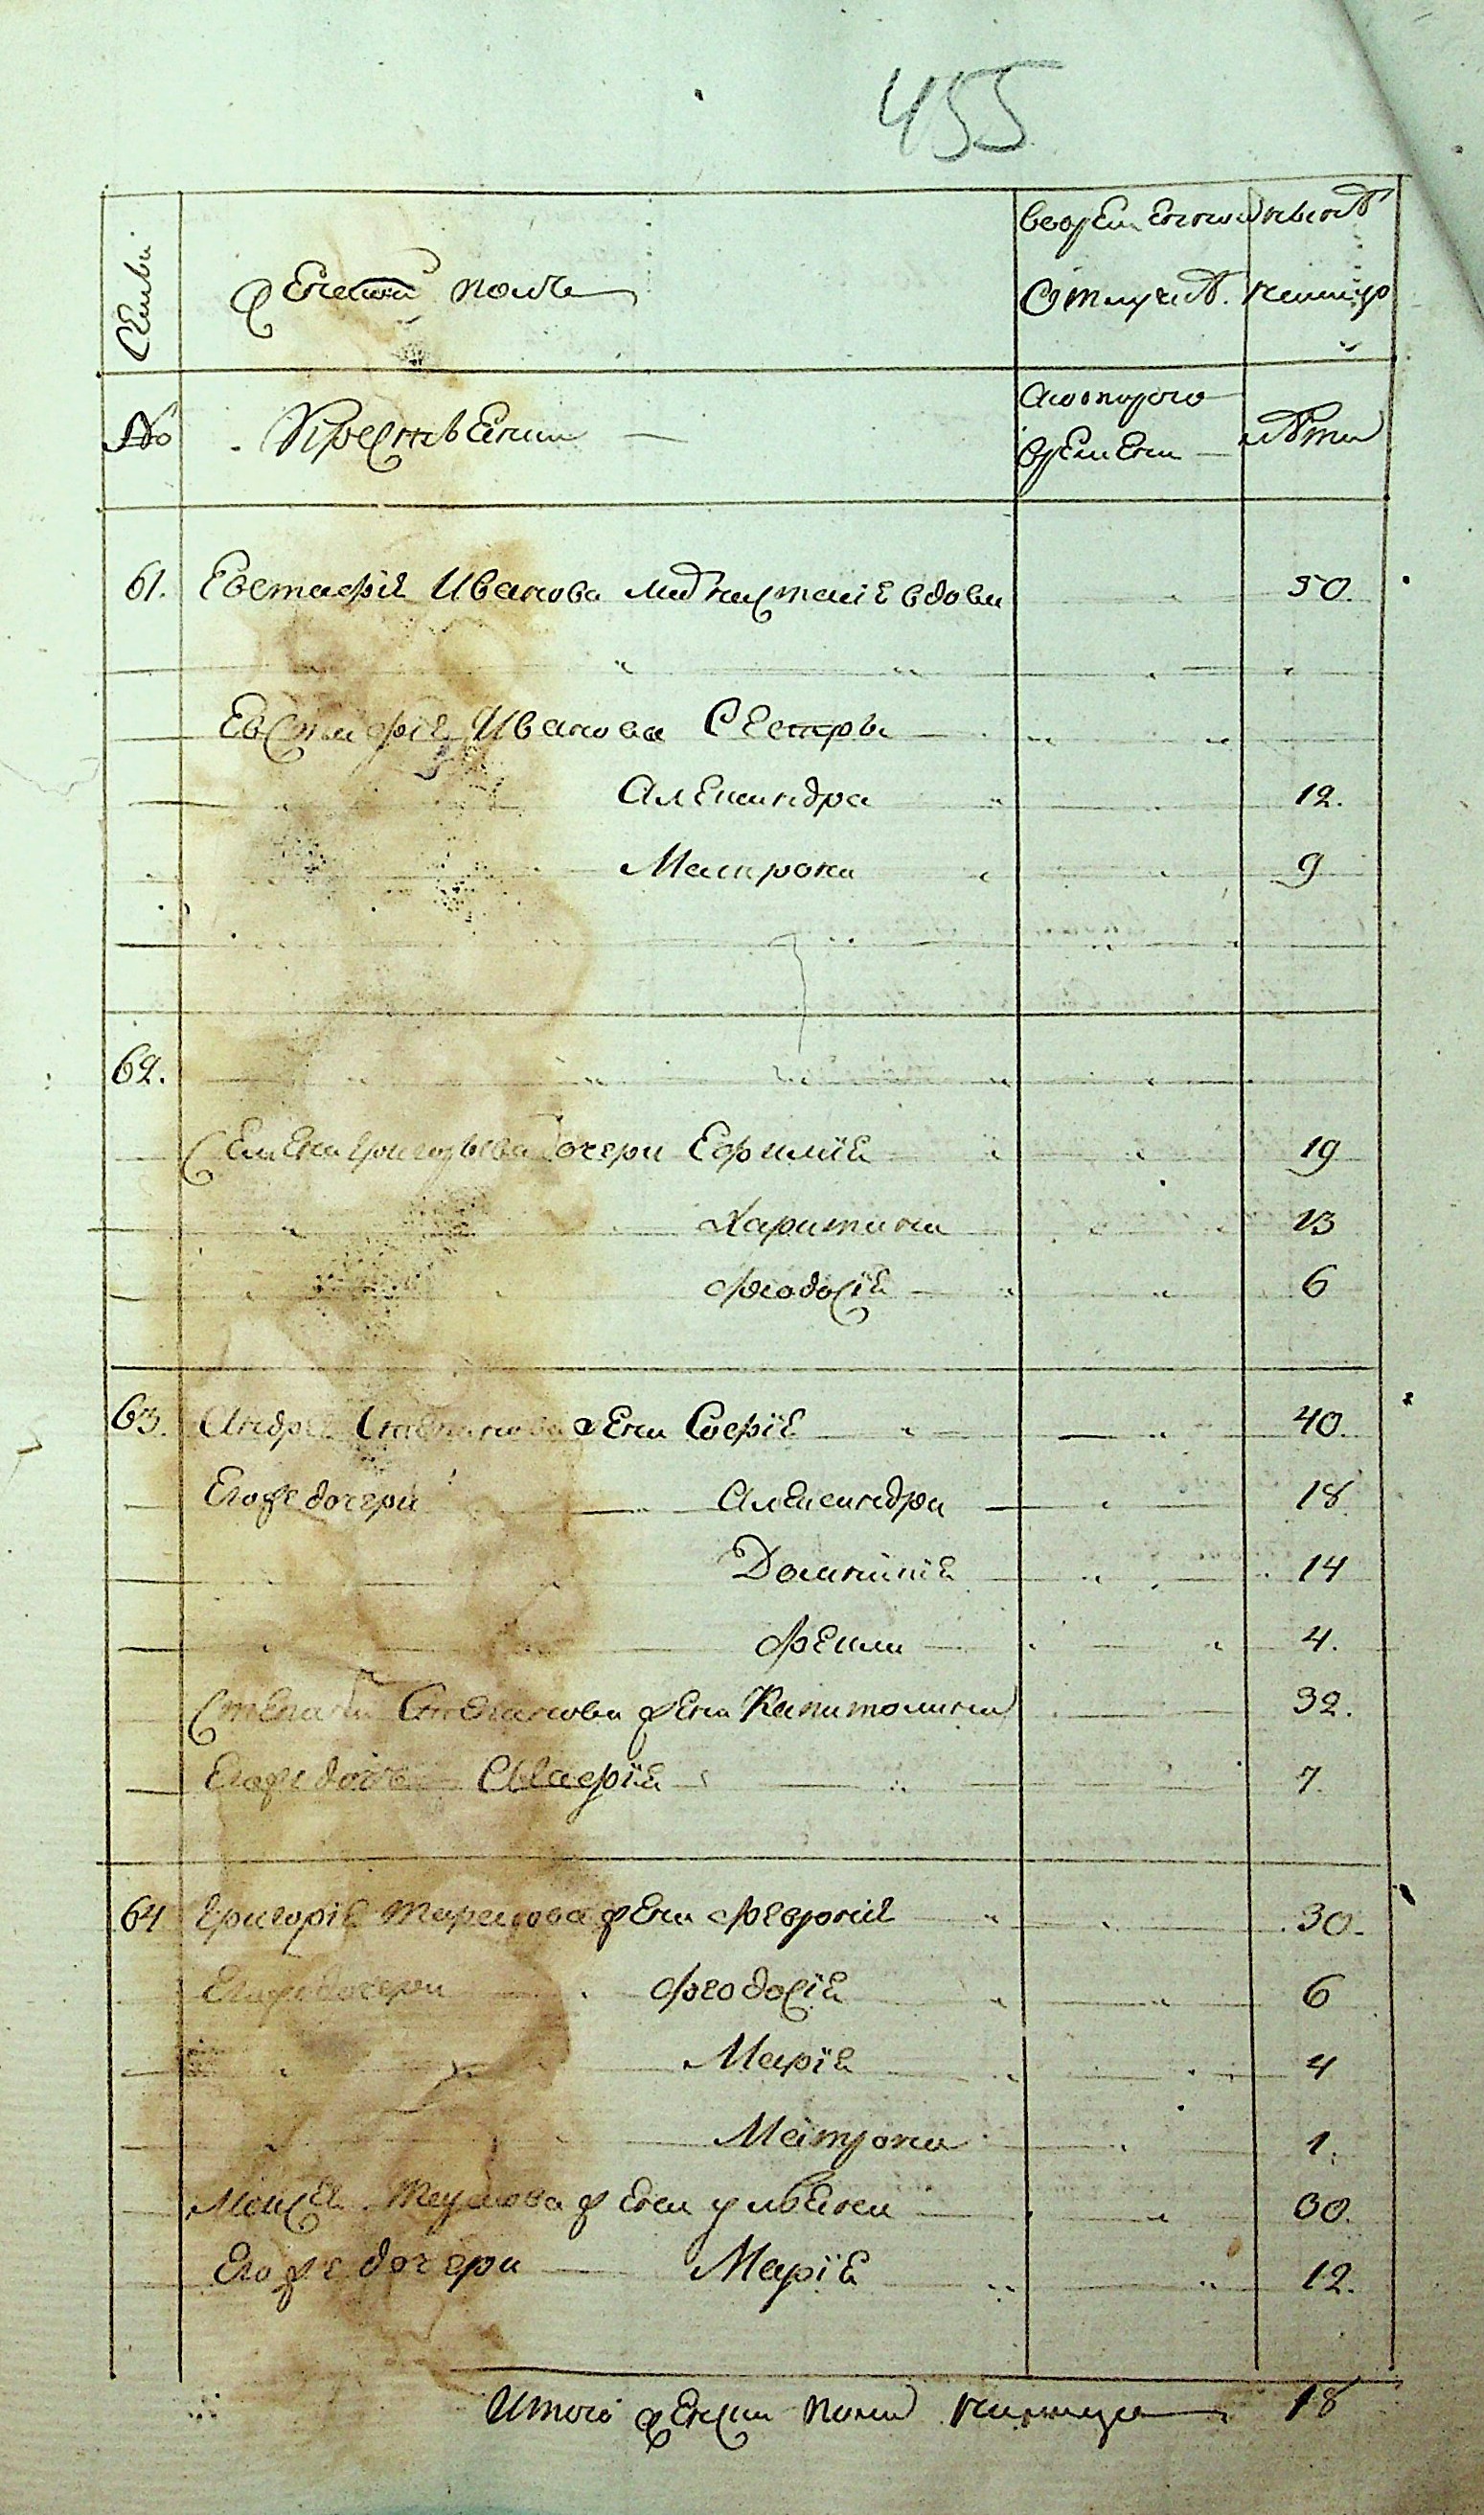 455
Семьи
Женской полъ
Во временной
отлучкѣ.
нынѣ
на лицо
№
Крестьянки
с котораго
времени
лѣта
61. Евстафія Иванова мать вдова 50.
Евстафія Иванова сестры
Александра 12.
Матрона 9
62.
Семена Григорьева дочери Ефимія 19
Харитина 13
Феодосія 6
63. Андрея Степанова жена Софія 40.
Его же дочери Александра 18
Домникія 14
Фекла 4.
Степана Степанова жена Капитолина 32.
Его же дочь 7.
64 Григорія Тарасова жена Феврония 30.
Его же дочери Феодосія 6
Марія 4
Матрона 1.
Моисея жена Ульяна 30.
Его же дочери Марія 12.
Итого женска пола на лицо 18